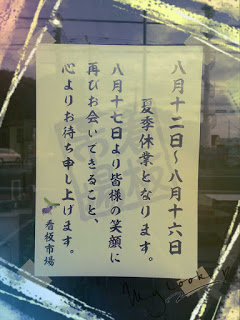 八月十二日～八月十六日
夏季休業となります。
八月十七日より皆様の笑顔に
再びお会いできること、
心よりお待ち申し上げます。
看板市場